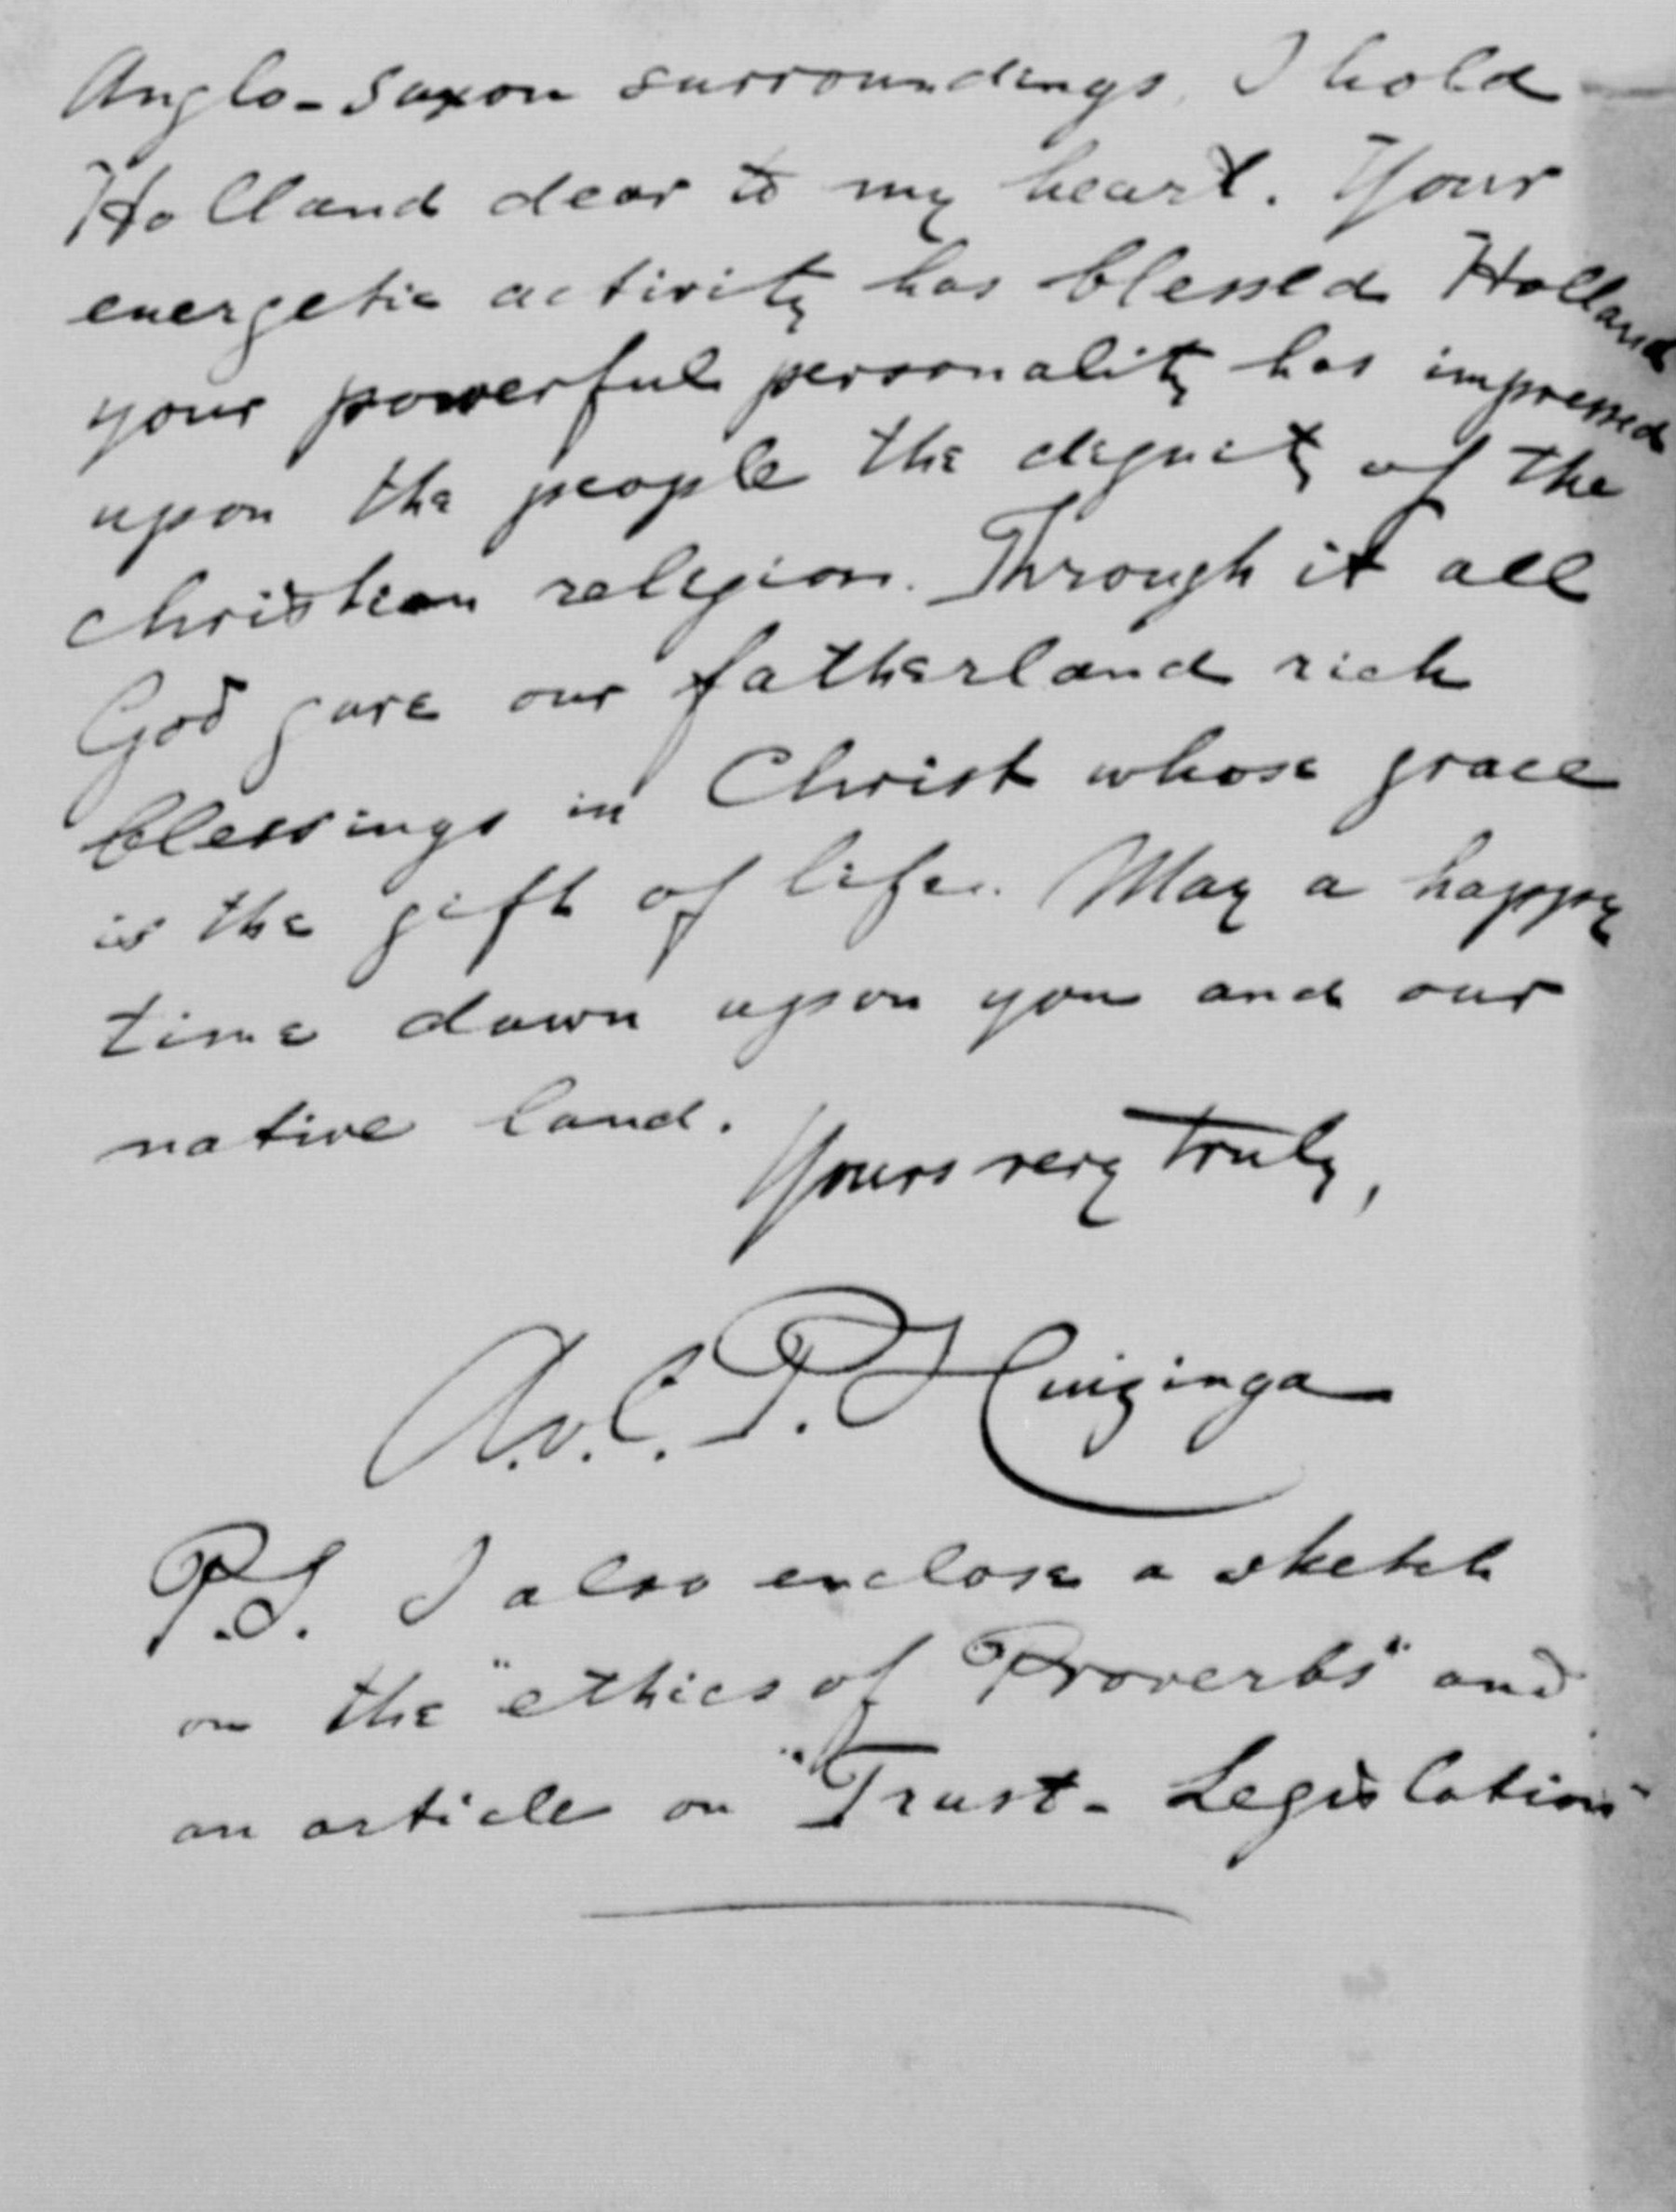 Anglo-Saxon surroundings, I hold
Holland dear to my heart. Your
energetic activity has blessed Holland
your powerful personality has impressed
upon the people the dignity of the
christian religion. Through it all
God gave our fatherland rich
blessings in Christ whose grace
is the gift of life. May a happy
time dawn upon you and our
native land.
Yours very truly,
A.v.C.P. Huizinga
P.S. I also enclose a sketch
on the "ethics of Proverbs" and
an article on "Trust-Legislation"